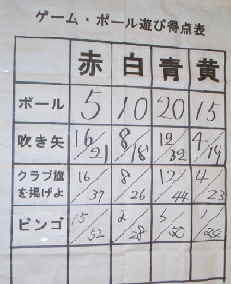 ゲーム・ボール遊び得点表
赤 白 青 黄
ボール 5 10 20 15
吹き矢 16/21 8/18 12/32 4/19
クラブ旗 16/37 8/26 12/44 4/23
を揚げよ
ビンゴ 15/52 2/28